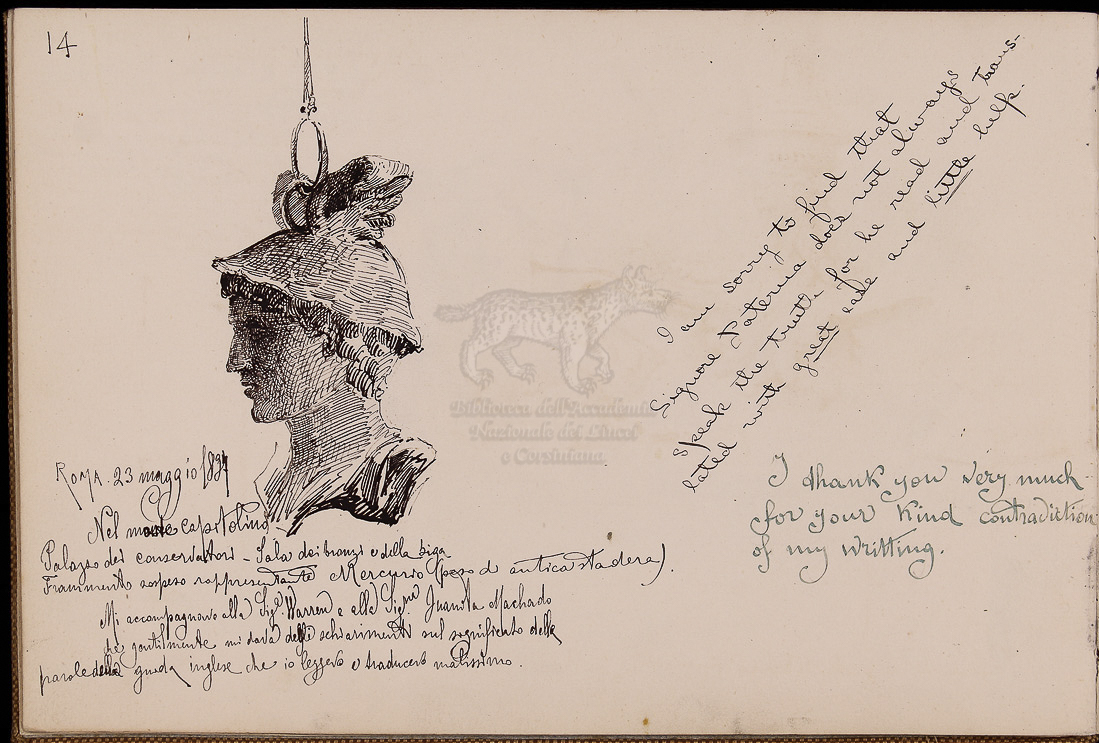 14
ROMA. 23 maggio 1894
Nel monte capitolino
Palazzo dei conservatori - Sala dei bronzi e della biga
Frammento sospeso rappresentante Mercurio (peso d antica stadera).
Mi accompagnavo alla Sig.ra Warren e alla Sig.na Juanita Machado
che gentilmente mi dava delli schiarimenti sul significato delle
parole della guida inglese che io leggevo e traducevo malissimo.
I am sorry to find that
Signore Paterna does not always
speak the truth for he read and trans-
lated with great ease and little help.
I thank you very much
for your kind contradiction
of my writting.
Biblioteca dell'Accademia
Nazionale dei Lincei
e Corsiniana